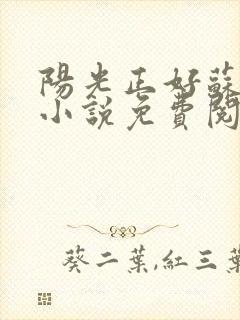 陽光正好蘇
小說免費閱
葵二葉,紅三葉